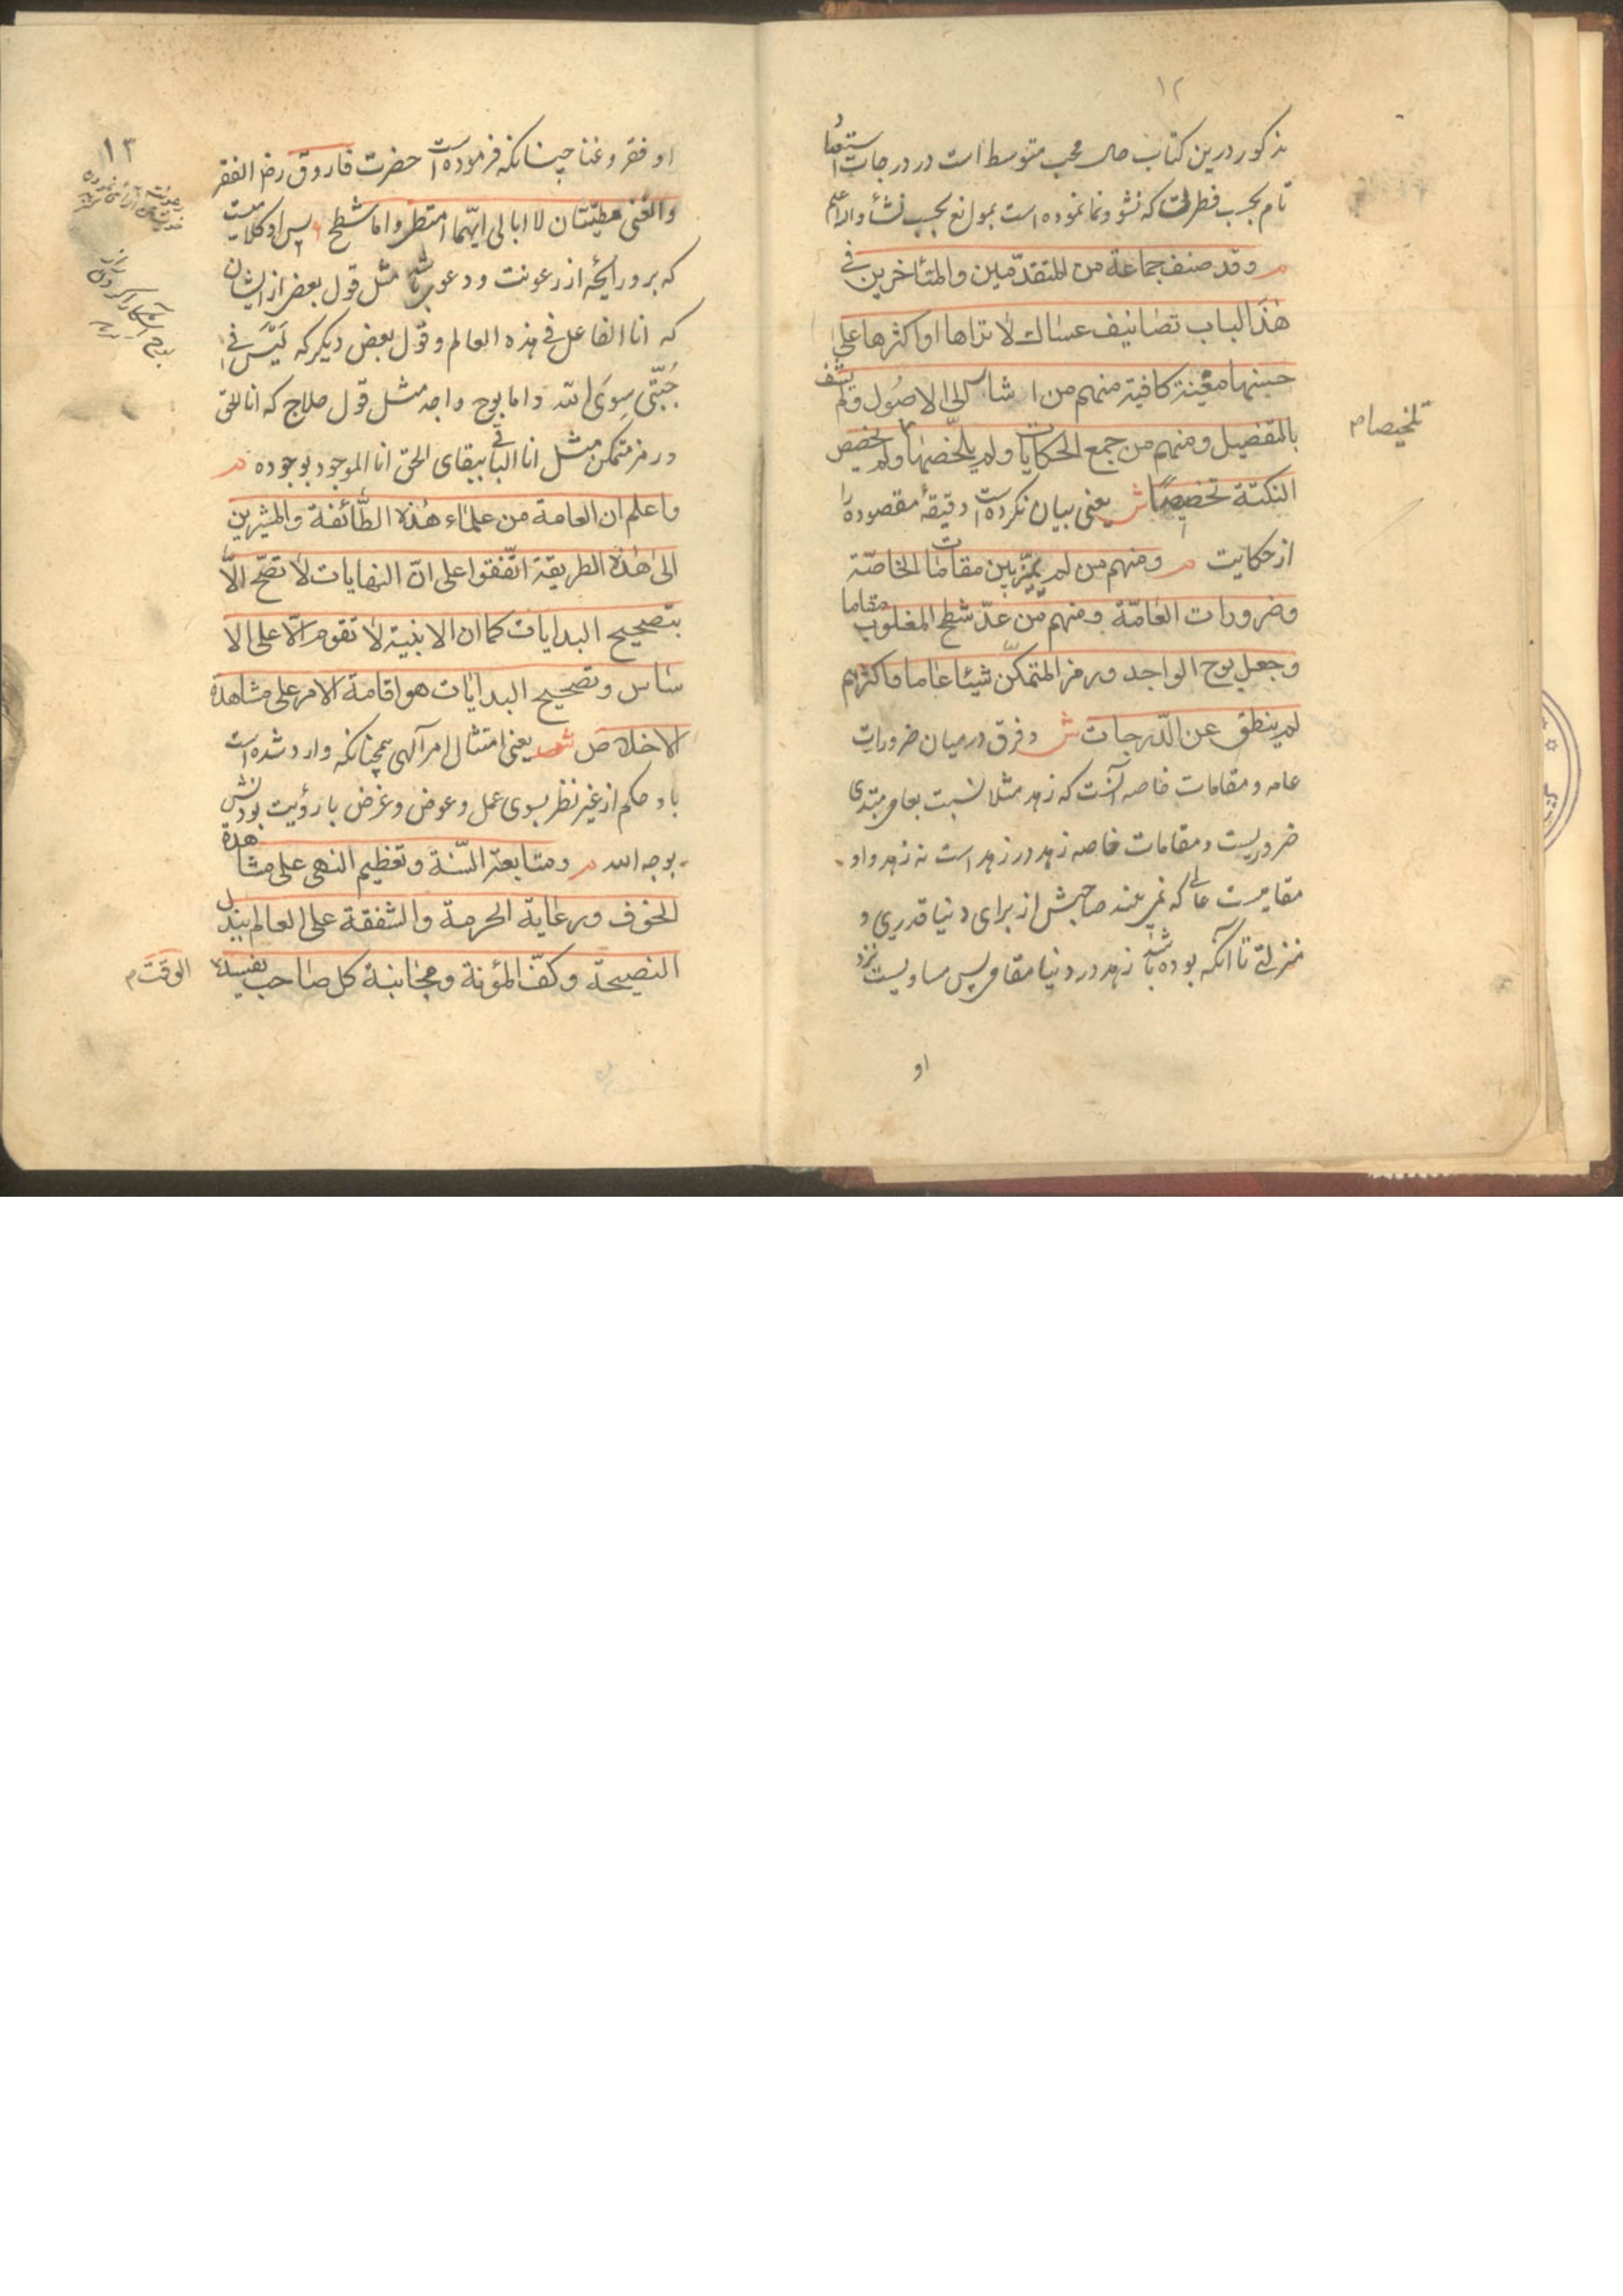 ۱۲
مذکور درین کتاب حال محب متوسط است در درجات استعداد
تام بحسب فطرت که نشو و نما نموده است بموانع بحسب نشأ والله اعلم
م وقد صنف جماعة من المتقدّمين والمتأخرين في
هذا الباب تصانيف عساك لا تراها او اكثرها على
حسنها مغنية كافية منهم من اشار الى الاصول ولم يشف
بالتفصيل ومنهم من جمع الحكايات ولم يلخّصها ولم يخصص
تلخيصا م
النكتة تخصيصًا ش يعنى بيان نكرده است دقيقهٔ مقصوده را
از حكايت م ومنهم من لم يميّز بين مقامات الخاصّة
وضرورات العامّة ومنهم من عدّ شطح المغلوب مقاما
وجعل بوح الواجد ورمز المتمكّن شيئا عاما واكثرهم
لم ينطق عن الدّرجات ش و فرق درميان ضرورات
عامه و مقامات خاصه آنست كه زهد مثلا نسبت بعامى مبتدى
ضروريست و مقامات خاصه زهد در زهد است نه زهد و او
مقاميست عالى كه نمى بيند صاحبش از براى دنيا قدرى و
منزلتى تا آنكه بوده باشد زهد در دنيا مقامى پس مساويست نزد
او
۱۳
او فقر و غنا چنانكه فرموده است حضرت فاروق رض الفقر
والغنى مطيّتان لا ابالى ايّهما امتطى و اما شطح پس او كلاميست
كه برو رايحه از رعونت و دعوى باشد مثل قول بعض از ايشان
كه انا الفاعل فى هذه العالم و قول بعض ديكر كه لَيْسَ فى
جُبّتى سِوَى الله و اما بوح واجد مثل قول حلاج كه انا الحق
و رمز متمكن مثل انا الباقى ببقاى الحق انا الموجود بوجوده م
واعلم ان العامة من علماء هذه الطّائفة والمشيرين
الى هذه الطريقة اتّفقوا على انّ النهايات لا تصحّ الّا
بتصحيح البدايات كما ان الابنية لا تقوم الّا على الا
ساس وتصحيح البدايات هو اقامة الامر على مشاهدة
الاخلاص ش يعنى امتثال امر آلهى همچنانكه وارد شده است
باو حكم از غير نظر بسوى عمل و عوض و غرض با رؤيت بودنش
بوجه الله م ومتابعة السّنة وتعظيم النهى على مشاهدة
الخوف ورعاية الحرمة والشفقة على العالم ببذل
النصيحة وكفّ المؤنة ومجانبة كل صاحب يفسد
الوقت م